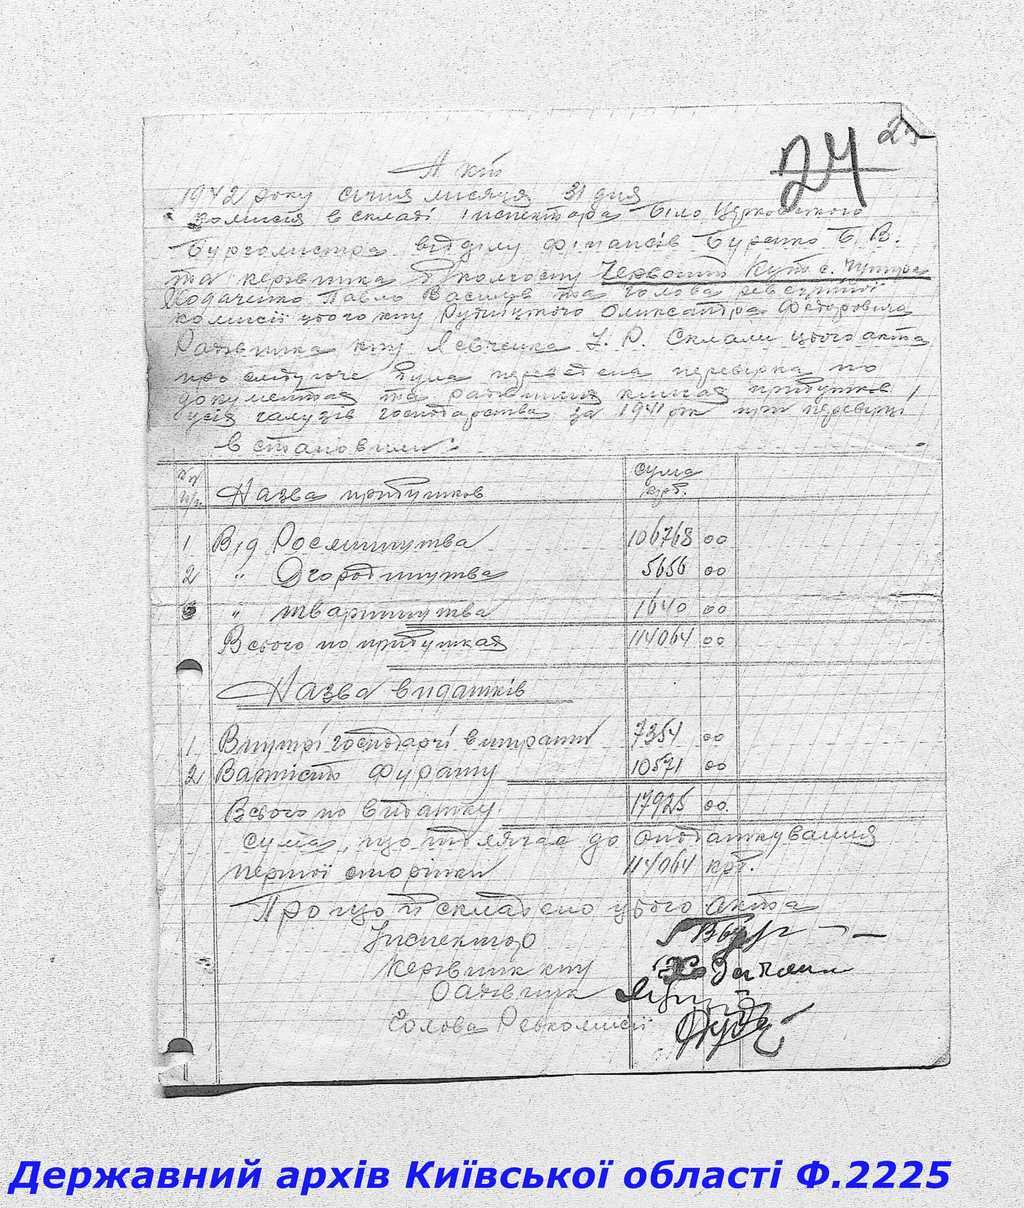 24
Акт
1942 року січня місяця 31 дня
комісія в складі інспектора Біло Церковського
Бургомистра відділу фінансів Буренко Б. В.
та керівника колгоспу Червоний Кут с.
Ходаченко Павло Васильов та голова ревізійної
комісії цього кпу Рудницького Олександра Федоровича
Рахівника кпу Левченка Склали цього акта
про слідуюче була переведена перевірка по
документах та рахівних книгах прибутків
усіх галузів господарства за 1941 рік при перевірці
встановили:
Назва прибутков сума крб.
1 Від Рослинництва 106768 00
2 " Огородництва 5656 00
3 " тваринництва 1640 00
Всього по прибутках 114064 00
Назва видатків
1 Внутрі господарчі витрати 7354 00
2 Вартість фуражу 10571 00
Всього по видатку 17925 00
сума, що підлягає до оподаткування
першої сторінки 114064 крб.
Про що й складено цього акта
Інспектор
Керівник кпу
Рахівник
Голова Ревкомисії
Державний архів Київської області Ф.2225